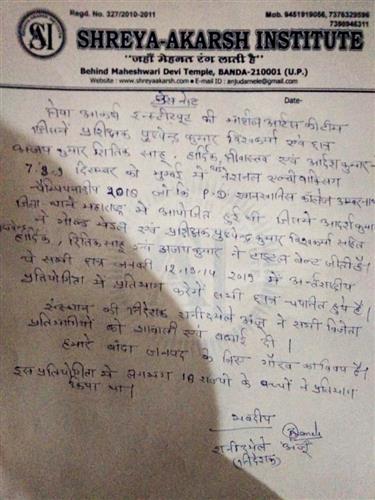 Regd. No. 327/2010-2011
Mob. 9451919056, 7376329596
7398946311
SAI
SHREYA-AKARSH INSTITUTE
"जहाँ मेहनत रंग लाती है"
Behind Maheshwari Devi Temple, BANDA-210001 (U.P.)
Website : www.shreyaakarsh.com • E-mail ID : anjudamele@gmail.com
प्रेस नोट Date-
श्रेया आकर्ष इन्स्टीट्यूट की मार्शल आर्ट्स की टीम
जिसमें प्रशिक्षक पुष्पेन्द्र कुमार विश्वकर्मा एवं छात्र
अजय कुमार रितिक साहू, हार्दिक, श्रीवास्तव एवं आदर्श कुमार
7, 8, 9 दिसम्बर को मुम्बई में नेशनल
चैम्पियनशीप 2018 जो कि कॉलेज
जिला थाने महाराष्ट्र में आयोजित हुई थी जिसमें आदर्श कुमार
ने गोल्ड मेडल एवं प्रशिक्षक पुष्पेन्द्र कुमार विश्वकर्मा सहित
हार्दिक, रितिक साहू एवं अजय कुमार ने जीती है।
ये सभी छात्र जनवरी 12, 13, 14 2019 में अन्तर्राष्ट्रीय
प्रतियोगिता में प्रतिभाग करेंगे सभी छात्र चयनित हुए हैं।
संस्थान की निदेशक शनीदमेले अंजू ने सभी विजेता
प्रतिभागियों को शाबासी एवं बधाई दी।
हमारे बाँदा जनपद के लिए गौरव का विषय है।
इस प्रतियोगिता में लगभग 18 राज्यों के बच्चों ने प्रतिभाग
किया था।
भवदीय
शनीदमेले अंजू
(निदेशक)